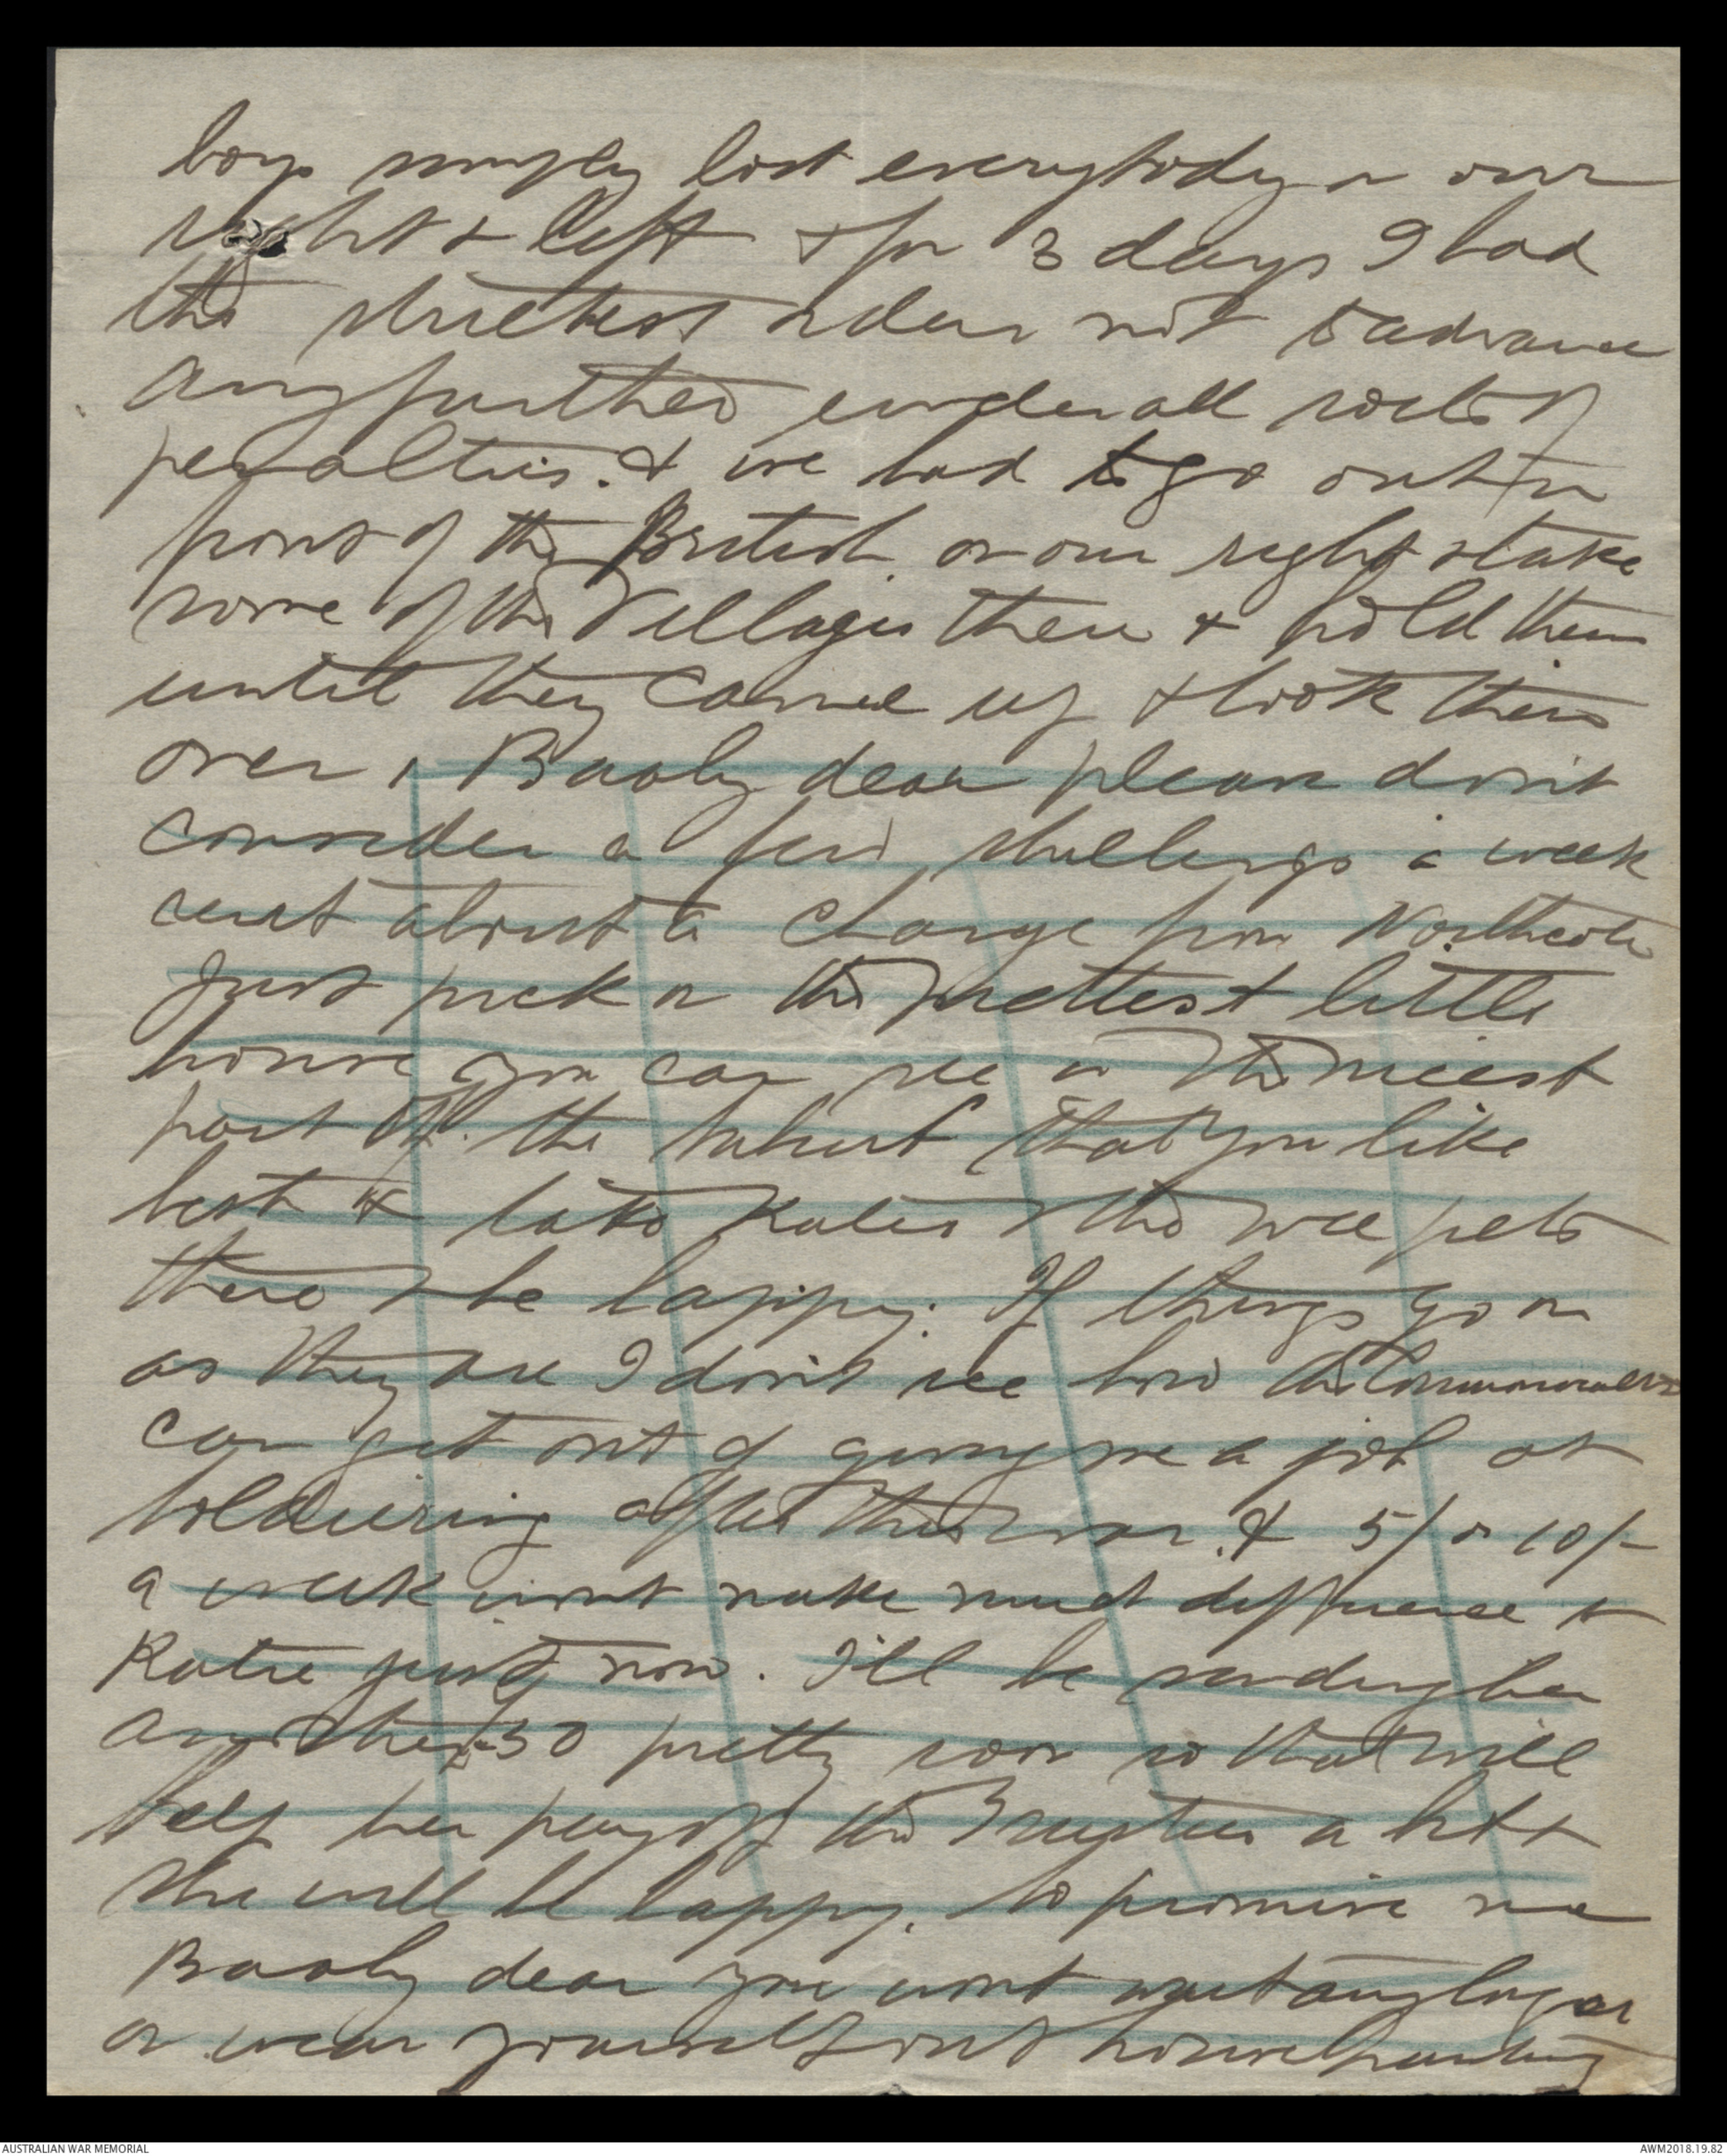 boys simply lost everybody on our
right & left & for 3 days I had
the strictest orders not to advance
any further under all sorts of
penalties. & we had to go out in
front of the British on our right & take
some of the Villages there & hold them
until they came up & took them
over, Baaby dear please don't
consider a few shillings a week
rent about a change from Northcote
Just pick on the prettest little
house you can see in the nicest
part of the suburb that you like
best & take Katie & the wee pets
there & be happy. If things go on
as they are I don't see how the Commonwealth
can get out of giving me a job at
soldiering after this war. & 5/ or 10/-
a week wont make much difference to
Katie just now. I'll be sending her
another £50 pretty soon so that will
help her pay off the a bit &
she will be happy. So promise me
Baaby dear you wont wait any longer
or wear yourself out househunting
AUSTRALIAN WAR MEMORIAL
AWM2018.19.82